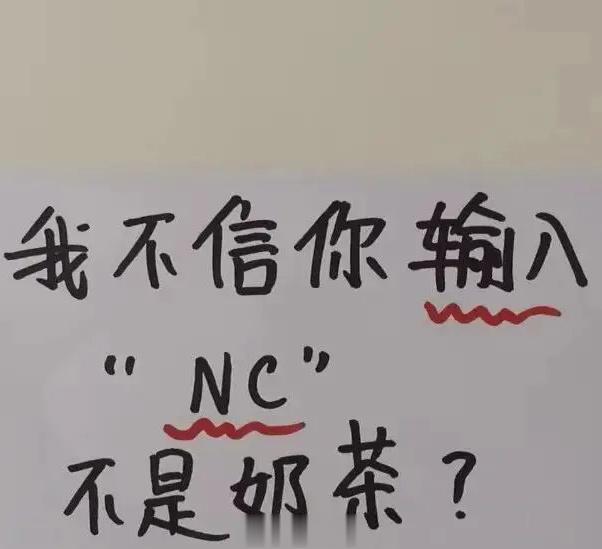 我不信你输入
“NC”
不是奶茶？